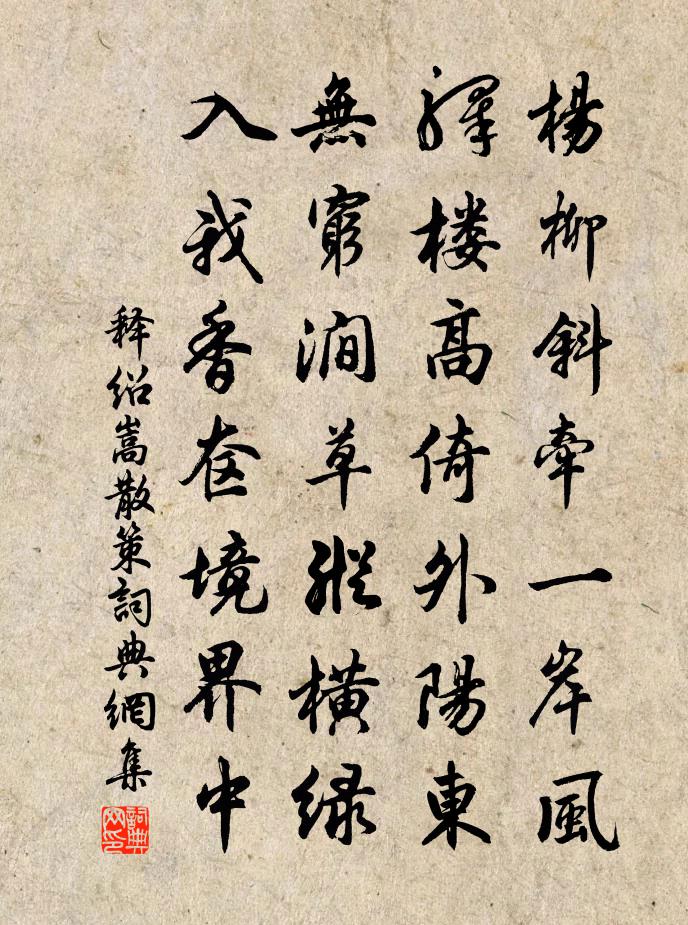 楊柳斜牽一岸風
驛樓高倚外陽東
無窮澗草縱橫綠
入我香奩境界中
释紹嵩散策詞典網集
詞典網印